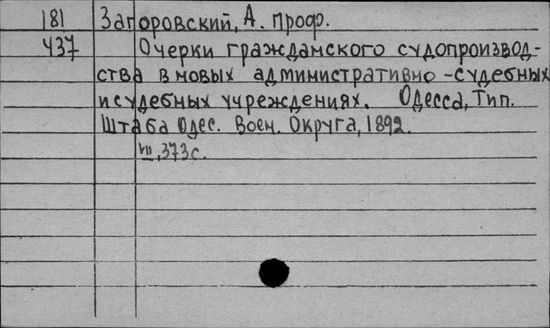 181 Загоровский, А. проф.
437 Очерки гражданского судопроизвод-
ства в новых административно-судебных
и судебных учреждениях. Одесса, Тип.
Штаба Одес. Воен. Округа, 1892.
VII, 373 с.